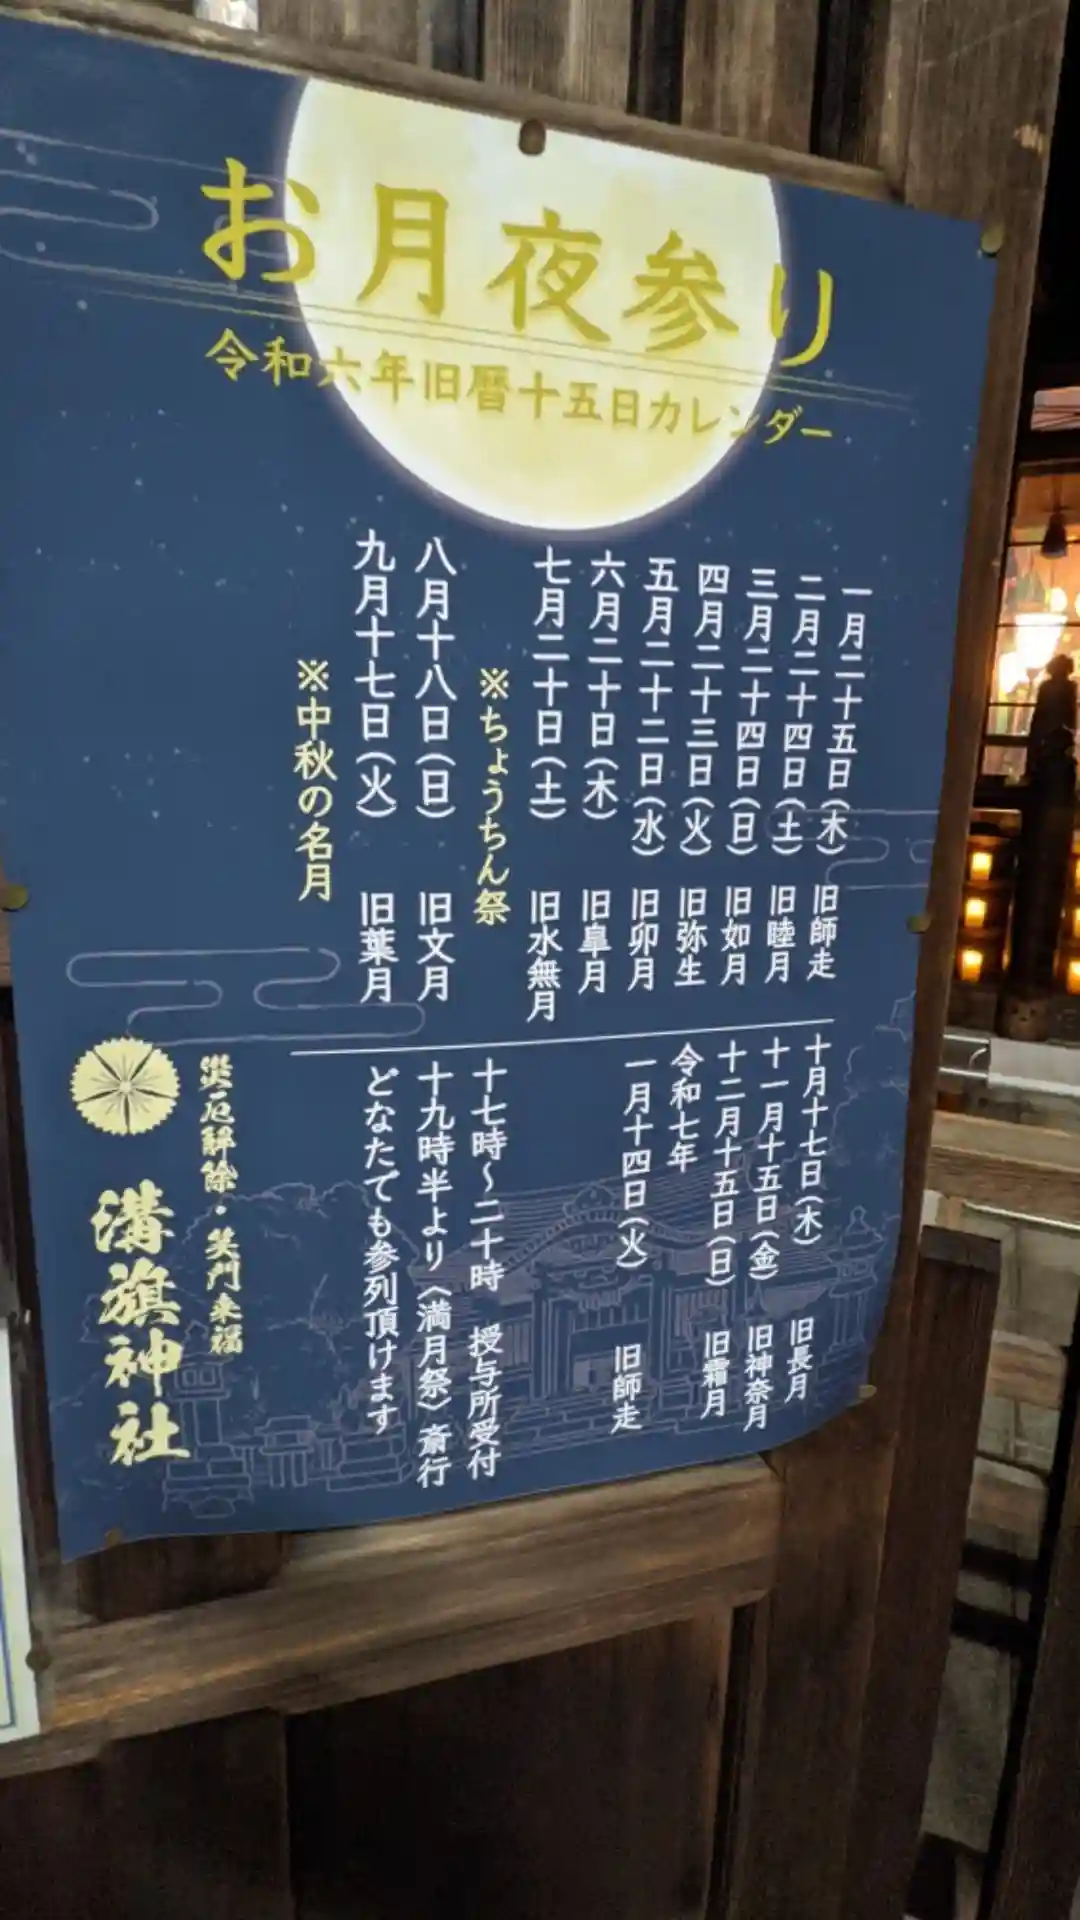 お月夜参り
令和六年旧暦十五日カレンダー
一月二十五日(木) 旧師走
二月二十四日(土) 旧睦月
三月二十四日(日) 旧如月
四月二十三日(火) 旧弥生
五月二十二日(水) 旧卯月
六月二十日(木) 旧皐月
七月二十日(土) 旧水無月
※ちょうちん祭
八月十八日(日) 旧文月
九月十七日(火) 旧葉月
※中秋の名月
十月十七日(木) 旧長月
十一月十五日(金) 旧神奈月
十二月十五日(日) 旧霜月
令和七年
一月十四日(火) 旧師走
十七時〜二十時 授与所受付
十九時半より〈満月祭〉斎行
どなたでも参列頂けます
災厄解除・笑門来福
溝旗神社